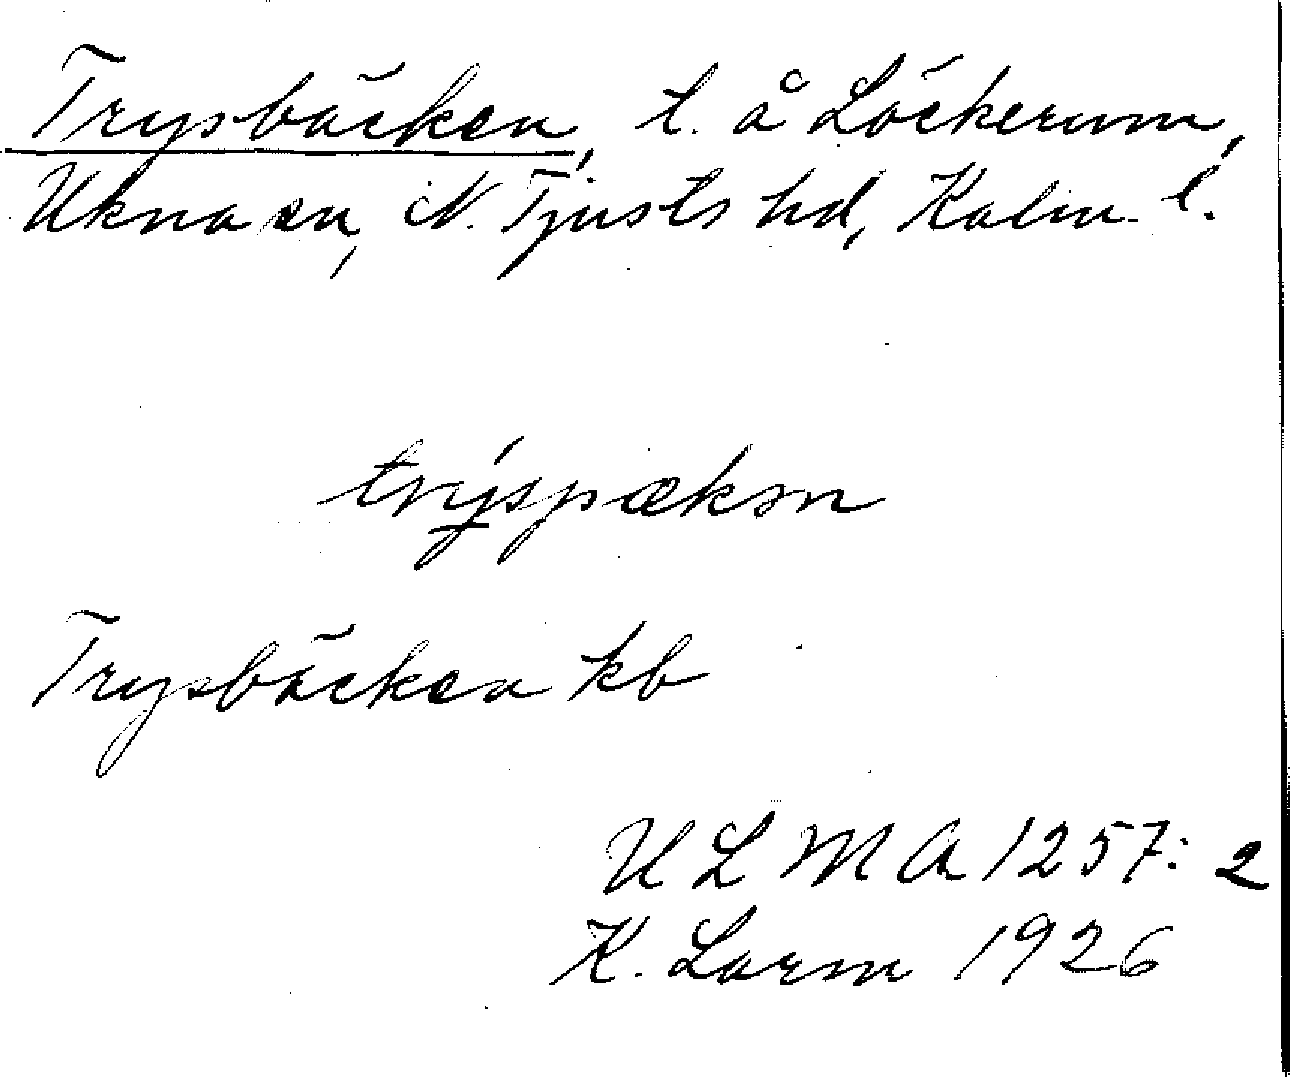 Trysbäcken, t. å Löckerum,
Ukna sn, N. Tjusts hd, Kalm. l.
trýspækən
Trysbäcken kb
ULMA 1257: 2
K. Lorm 1926